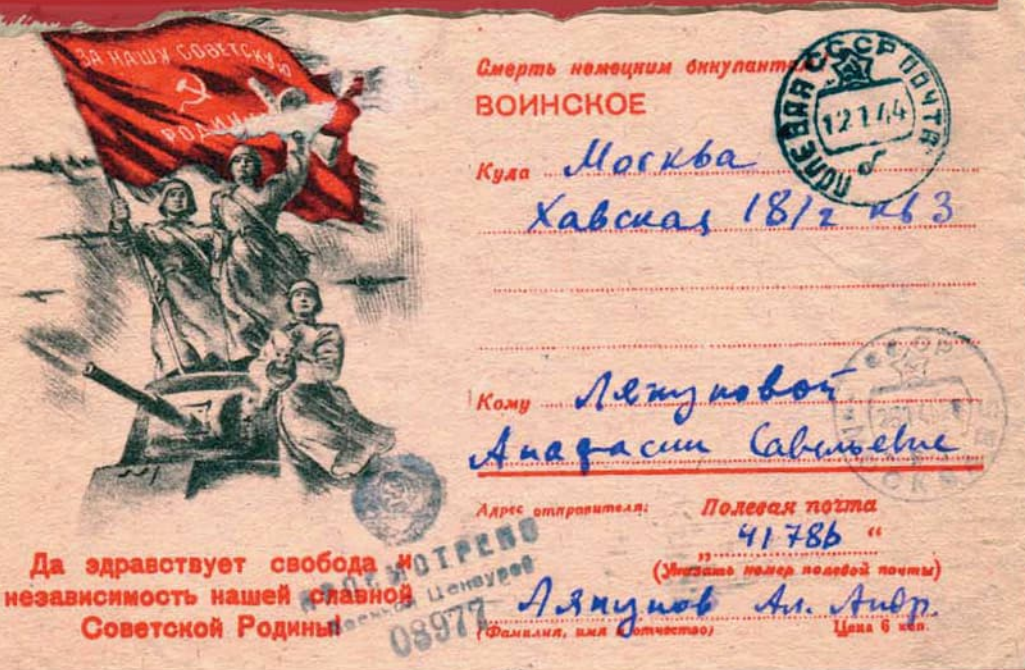 ЗА НАШУ СОВЕТСКУЮ
РОДИНУ
Смерть немецким оккупантам
ВОИНСКОЕ
ПОЛЕВАЯ СССР ПОЧТА
12 1 44
б
Куда Москва
Хавская 18/2 кв 3
Кому Ляпуновой
Савельевне
Адрес отправителя: Полевая почта
„ 41786 “
(Указать номер полевой почты)
Ляпунов Ал. Андр.
(Фамилия, имя и отчество) Цена 6 коп.
Да здравствует свобода и
независимость нашей славной
Советской Родины!
ПРОСМОТРЕНО
Военной Цензурой
08977